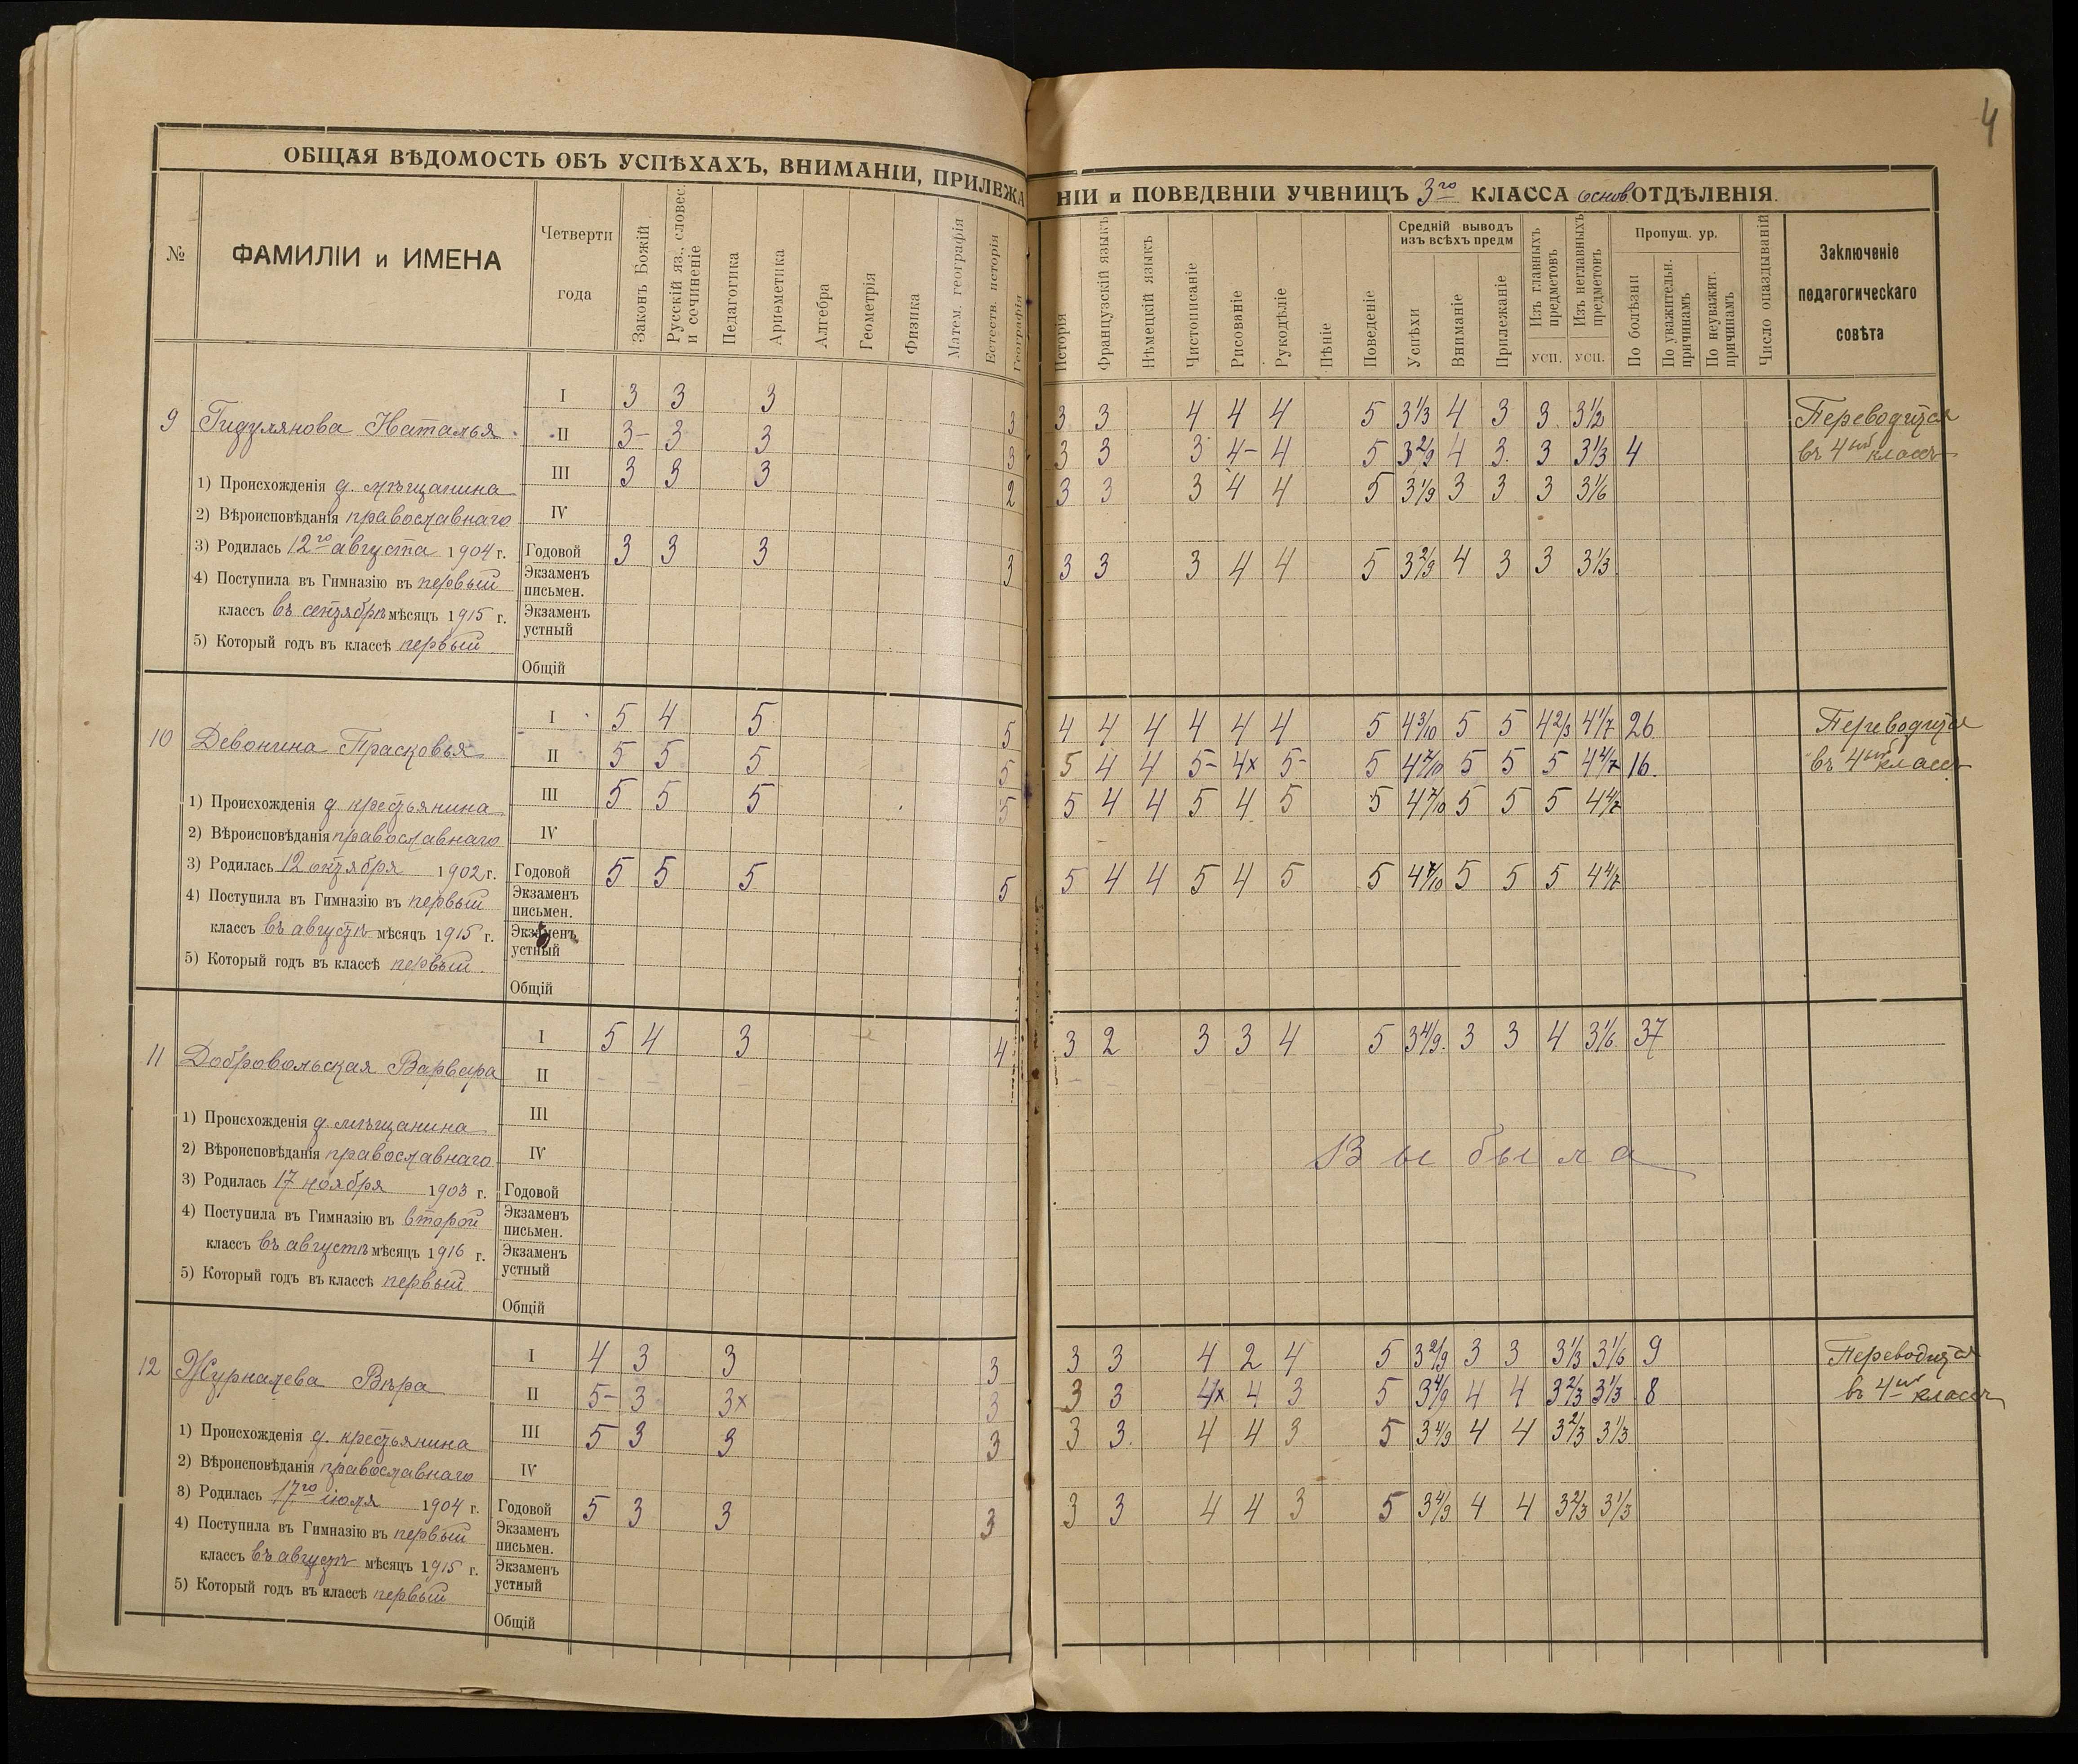 4
ОБЩАЯ ВѢДОМОСТЬ ОБЪ УСПѢХАХЪ, ВНИМАНІИ, ПРИЛЕЖАНІИ и ПОВЕДЕНІИ УЧЕНИЦЪ 3го КЛАССА основ. ОТДѢЛЕНІЯ.
№ ФАМИЛІИ и ИМЕНА Четверти года Законъ Божій Русскій яз., словес. и сочиненіе Педагогика Ариѳметика Алгебра Геометрія Физика Матем. географія Естеств. исторія Географія Исторія Французскій языкъ Нѣмецкій языкъ Чистописаніе Рисованіе Рукодѣліе Пѣніе Поведеніе Средній выводъ изъ всѣхъ предм Успѣхи Вниманіе Прилежаніе Изъ главныхъ предметовъ усп. Изъ неглавныхъ предметовъ усп. Пропущ. ур. По болѣзни По уважительн. причинамъ По неуважит. причинамъ Число опаздываній Заключеніе педагогическаго совѣта
I 3 3 3 3 3 3 4 4 4 5 3 1/3 4 3 3 3 1/2 Переводится
9 Гидулянова Наталья II 3- 3 3 3 3 3 3 4- 4 5 3 2/9 4 3 3 3 1/3 4 въ 4ый классъ
1) Происхожденія д. мѣщанина III 3 3 3 2 3 3 3 4 4 5 3 1/9 3 3 3 3 1/6
2) Вѣроисповѣданія православнаго IV
3) Родилась 12го августа 1904 г. Годовой 3 3 3 3 3 3 3 4 4 5 3 2/9 4 3 3 3 1/3
4) Поступила въ Гимназію въ первый Экзаменъ письмен.
классъ въ сентябрѣ мѣсяцъ 1915 г. Экзаменъ устный
5) Который годъ въ классѣ первый
Общій
I 5 4 5 5 4 4 4 4 4 4 5 4 3/10 5 5 4 2/3 4 1/7 26 Переводится
10 Девонина Прасковья II 5 5 5 5 5 4 4 5- 4x 5- 5 4 7/10 5 5 5 4 4/7 16 въ 4ый классъ
1) Происхожденія д. крестьянина III 5 5 5 5 5 4 4 5 4 5 5 4 7/10 5 5 5 4 4/7
2) Вѣроисповѣданія православнаго IV
3) Родилась 12 октября 1902 г. Годовой 5 5 5 5 5 4 4 5 4 5 5 4 7/10 5 5 5 4 4/7
4) Поступила въ Гимназію въ первый Экзаменъ письмен.
классъ въ августѣ мѣсяцъ 1915 г. Экзаменъ устный
5) Который годъ въ классѣ первый
Общій
I 5 4 3 4 3 2 3 3 4 5 3 4/9 3 3 4 3 1/6 37
11 Добровольская Варвара II
1) Происхожденія д. мѣщанина III
2) Вѣроисповѣданія православнаго IV Выбыла
3) Родилась 17 ноября 1903 г. Годовой
4) Поступила въ Гимназію въ второй Экзаменъ письмен.
классъ въ августѣ мѣсяцъ 1916 г. Экзаменъ устный
5) Который годъ въ классѣ первый
Общій
I 4 3 3 3 3 3 4 2 4 5 3 2/9 3 3 3 1/3 3 1/6 9 Переводится
12 Журналева Вѣра II 5- 3 3x 3 3 3 4x 4 3 5 3 4/9 4 4 3 2/3 3 1/3 8 въ 4ый классъ
1) Происхожденія д. крестьянина III 5 3 3 3 3 3 4 4 3 5 3 4/9 4 4 3 2/3 3 1/3
2) Вѣроисповѣданія православнаго IV
3) Родилась 17го іюля 1904 г. Годовой 5 3 3 3 3 3 4 4 3 5 3 4/9 4 4 3 2/3 3 1/3
4) Поступила въ Гимназію въ первый Экзаменъ письмен.
классъ въ августѣ мѣсяцъ 1915 г. Экзаменъ устный
5) Который годъ въ классѣ первый
Общій